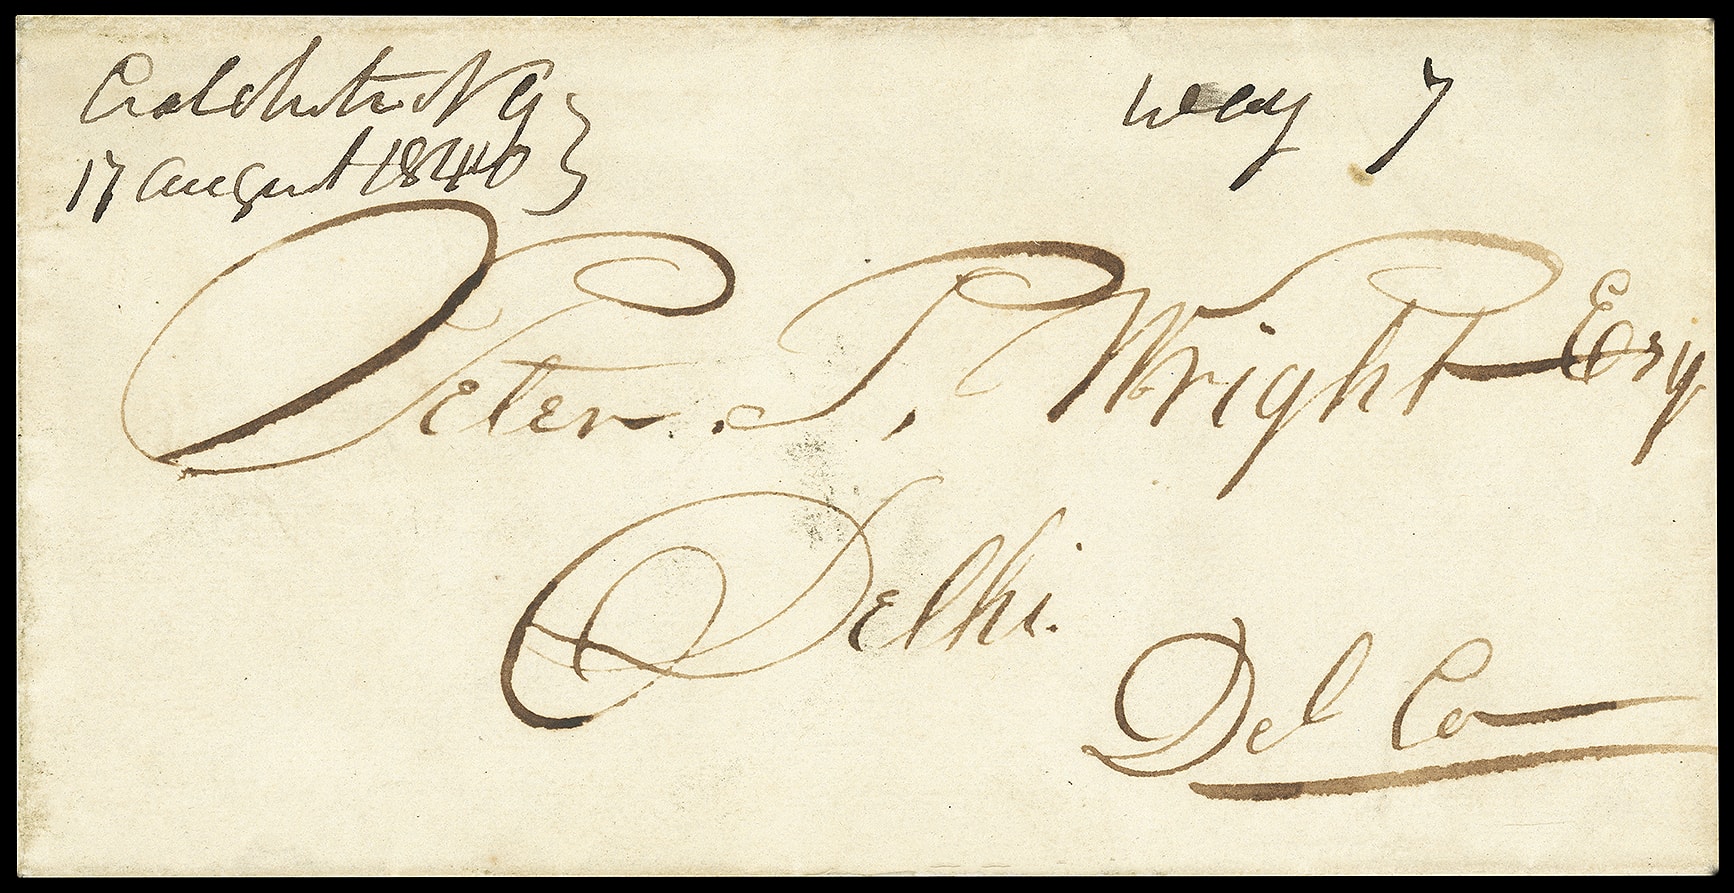 Colchester N Y
17 august 1840
way 7
Peter . P. Wright Esq.
Delhi.
Del Co